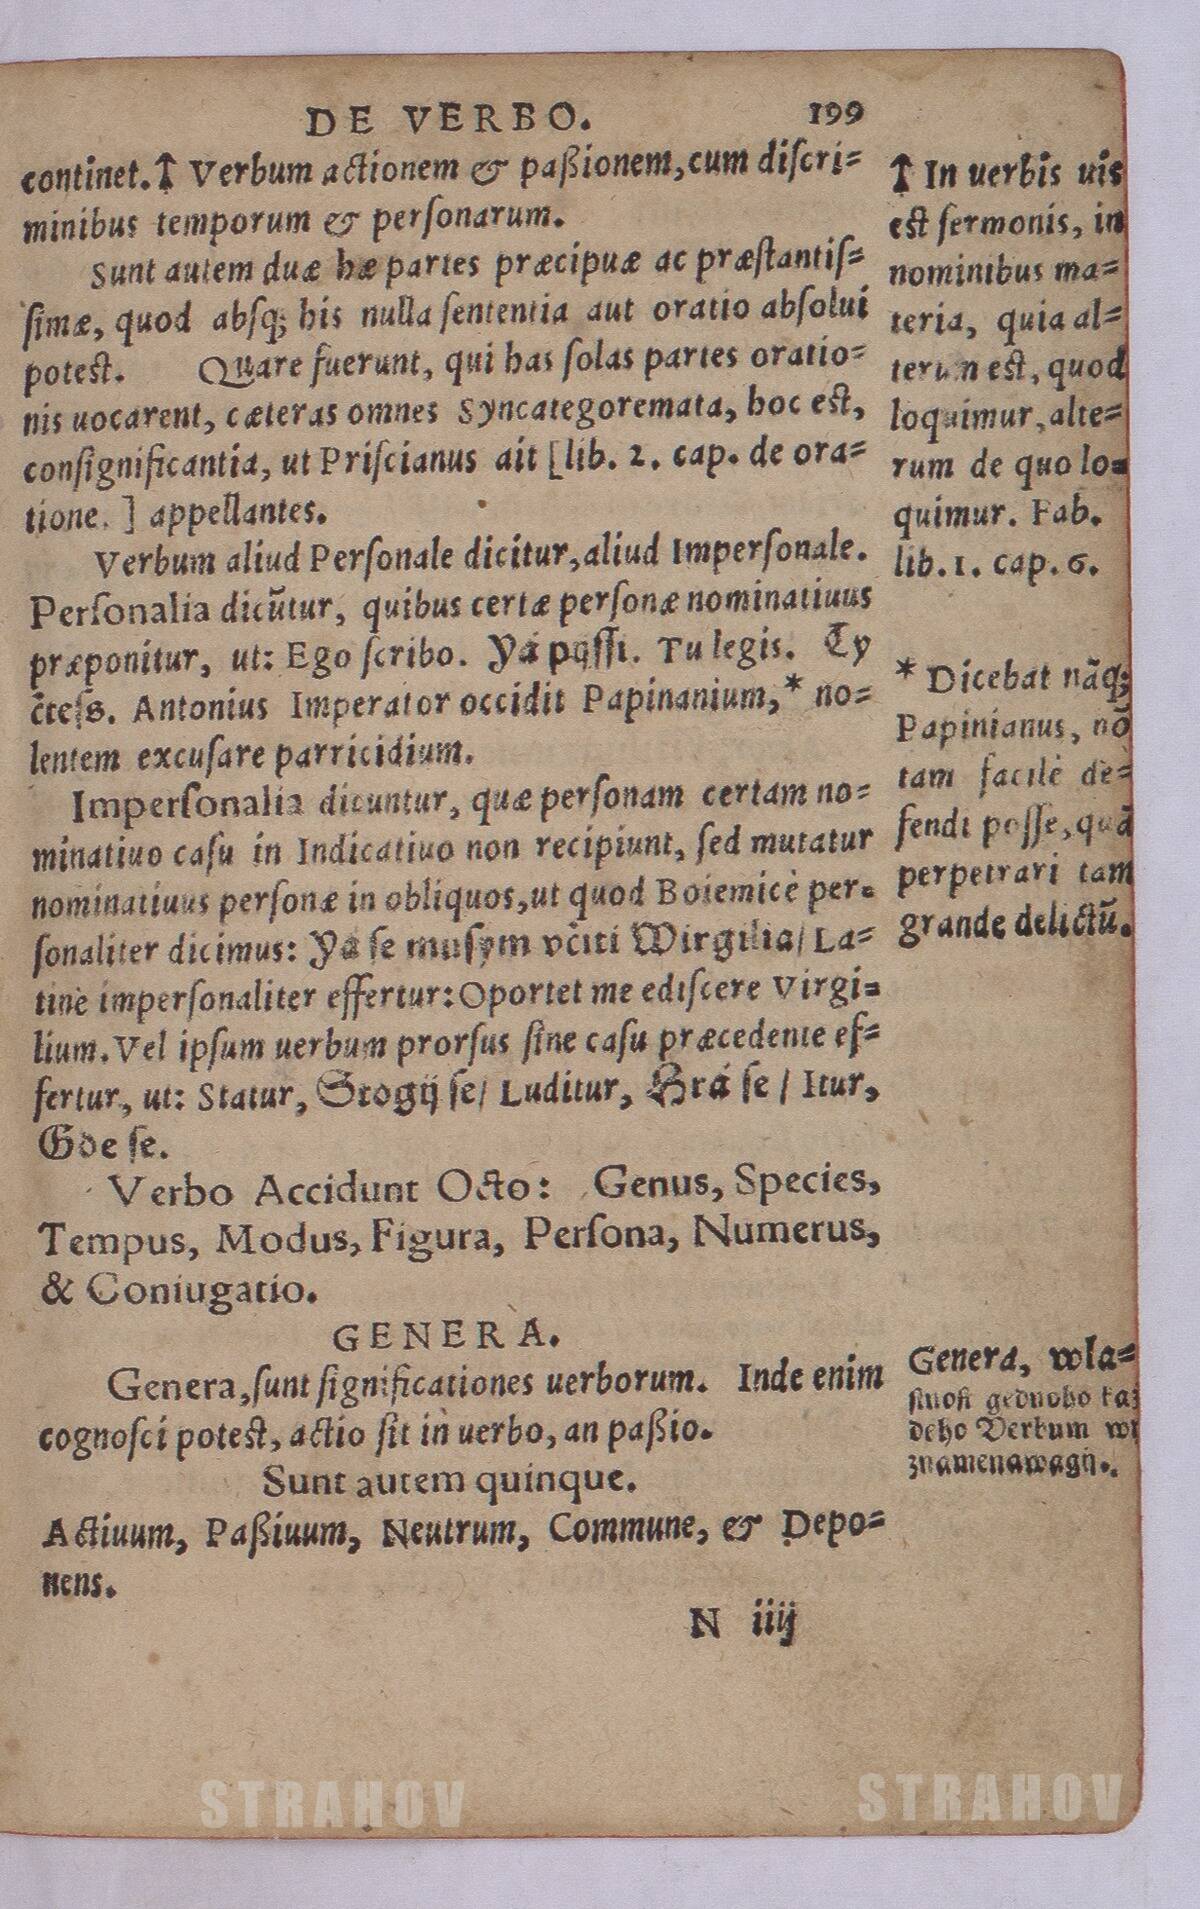 DE VERBO. 199
continet.† Verbum actionem & paßionem, cum diſcri-
minibus temporum & perſonarum.
Sunt autem duæ hæ partes præcipuæ ac præſtantiſ-
ſimæ, quod absq; his nulla ſententia aut oratio abſolui
poteſt. Quare fuerunt, qui has ſolas partes oratio-
nis uocarent, cæteras omnes Syncategoremata, hoc eſt,
conſignificantia, ut Priſcianus ait [lib. 2. cap. de ora-
tione.] appellantes.
Verbum aliud Perſonale dicitur, aliud Imperſonale.
Perſonalia dicūtur, quibus certæ perſonæ nominatiuus
præponitur, ut: Ego ſcribo. Yá pijſſi. Tu legis. Ty
čteſs. Antonius Imperator occidit Papinanium,* no-
lentem excuſare parricidium.
Imperſonalia dicuntur, quæ perſonam certam no-
minatiuo caſu in Indicatiuo non recipiunt, ſed mutatur
nominatiuus perſonæ in obliquos, ut quod Boiemicè per-
ſonaliter dicimus: Yá ſe muſym včiti Wirgilia/ La-
tinè imperſonaliter effertur: Oportet me ediſcere Virgi-
lium. Vel ipſum uerbum prorſus ſine caſu præcedente ef-
fertur, ut: Statur, Stogij ſe/ Luditur, Hrá ſe/ Itur,
Gde ſe.
Verbo Accidunt Octo: Genus, Species,
Tempus, Modus, Figura, Perſona, Numerus,
& Coniugatio.
GENERA.
Genera, ſunt ſignificationes uerborum. Inde enim
cognoſci poteſt, actio ſit in uerbo, an paßio.
Sunt autem quinque.
Actiuum, Paßiuum, Neutrum, Commune, & Depo-
nens.
N iiij
† In uerbis uis
eſt ſermonis, in
nominibus ma-
teria, quia al-
terum eſt, quod
loquimur, alte-
rum de quo lo-
quimur. Fab.
lib. 1. cap. 6.
* Dicebat nāq;
Papinianus, nō
tam facilè de-
fendi poſſe, quā
perpetrari tam
grande delictū.
Genera, wla-
ſtnoſt gednoho kaž
deho Verbum wy
znamenawagij.
STRAHOV
STRAHOV